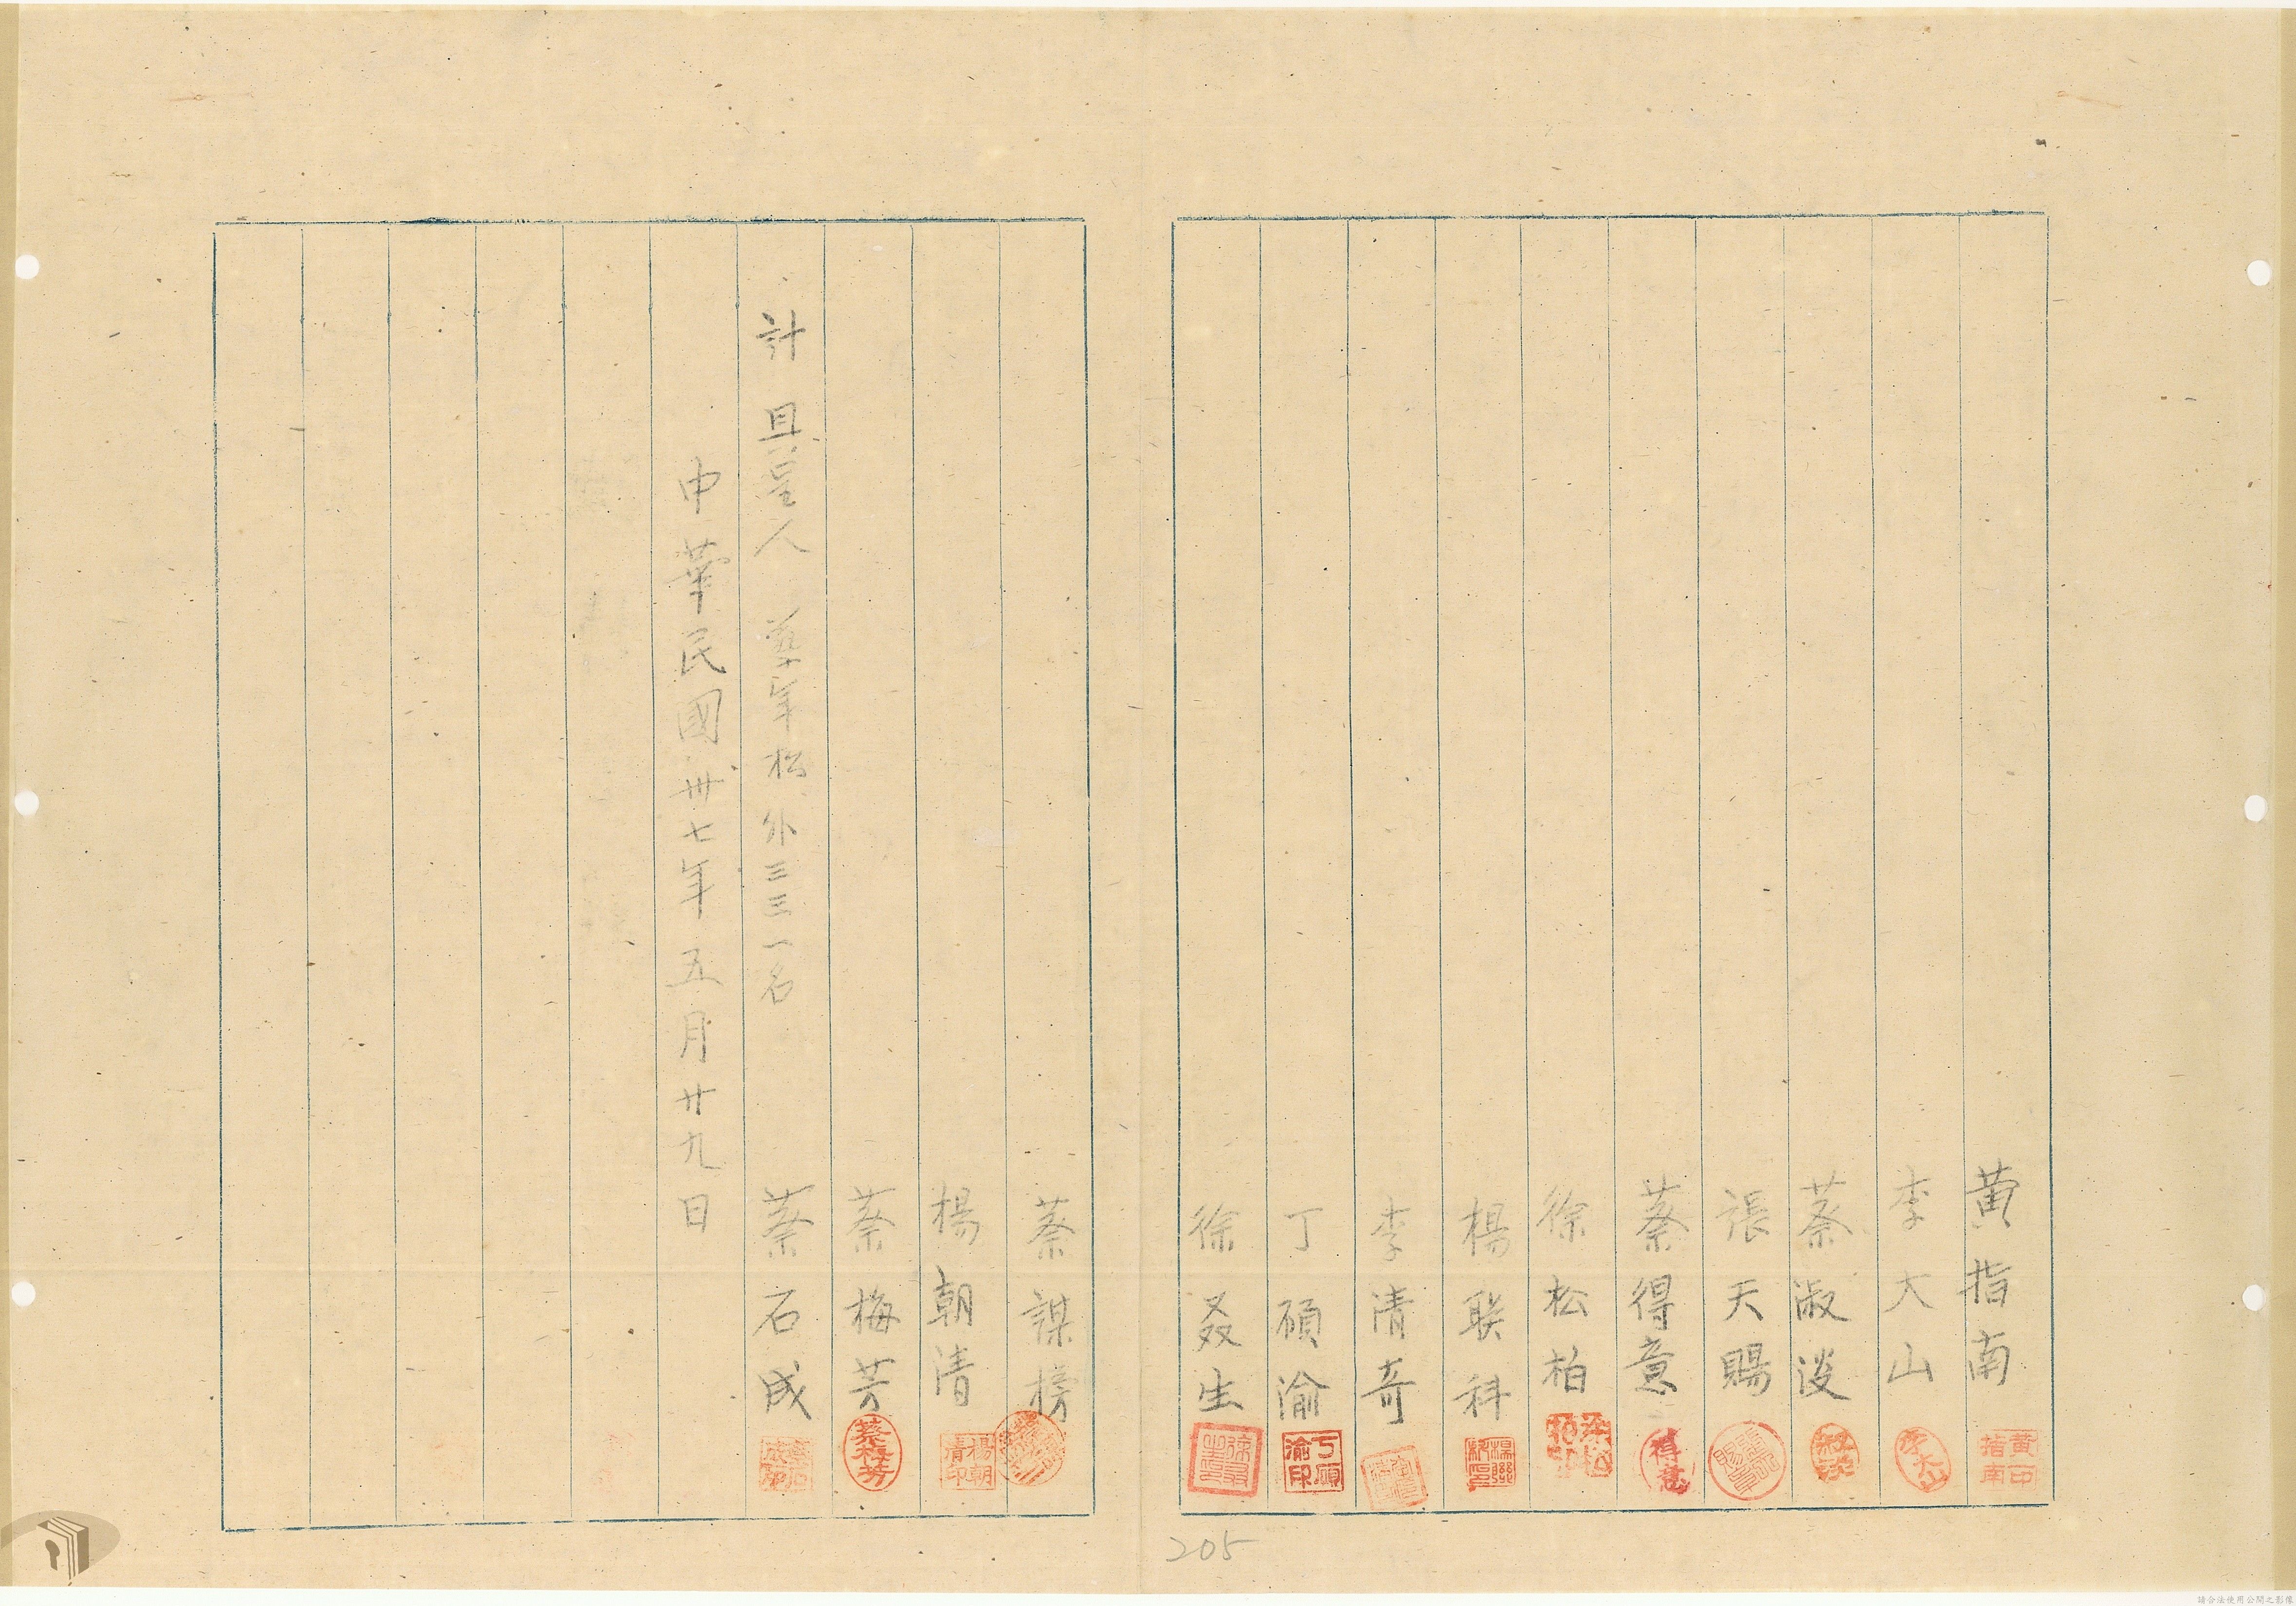 黄指南
黄印指南
李大山
李大山
蔡淑淡
淑淡
張天賜
蔡得意
得意
徐松柏
楊联科
楊聯科印
李清奇
丁碩渝
丁碩渝印
徐叒生
蔡謀榜
楊朝清
楊朝清印
蔡梅芳
蔡梅芳
計 具呈人 年松 外三三一名 蔡石成
中華民國卅七年五月廿九日
205
請合法使用公開之影像